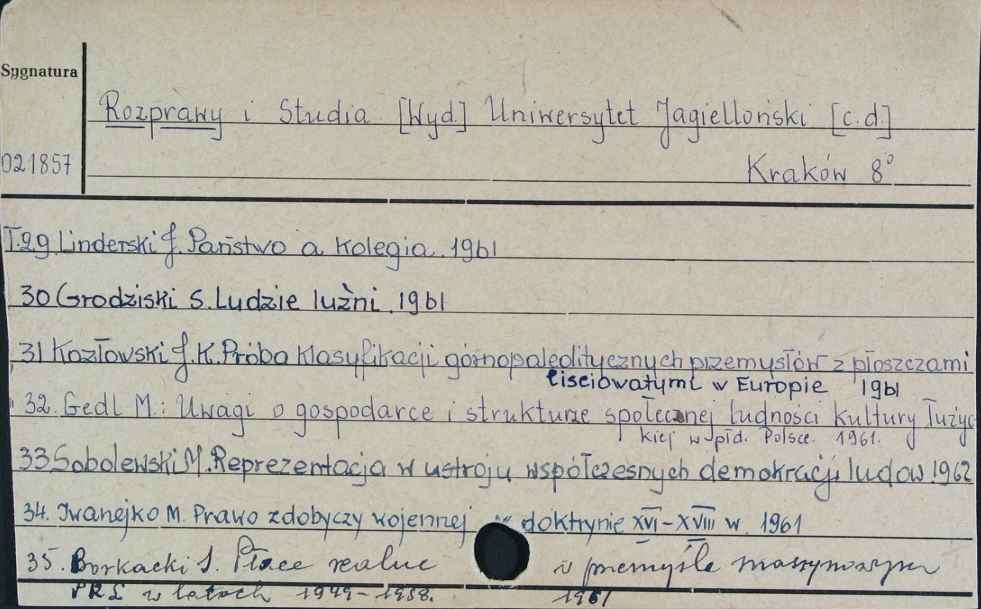 Sygnatura
Rozprawy i Studia [Wyd.] Uniwersytet Jagielloński [c.d.]
021857
Kraków 8°
T.29. Linderski J. Państwo a kolegia. 1961
30 Grodziski S. Ludzie luźni. 1961
31 Kozłowski J.K. Próba klasyfikacji górnopaleolitycznych przemysłów z płoszczami
liściowatymi w Europie 1961
32. Gedl M: Uwagi o gospodarce i strukturze społecznej ludności kultury łużyc
kiej w płd. Polsce. 1961.
33 Sobolewski M. Reprezentacja w ustroju współczesnych demokracji ludow. 1962
34. Iwanejko M. Prawo zdobyczy wojennej w doktrynie XVI-XVIII w. 1961
35. Borkacki S. Płace realne w przemyśle maszynowym
PRL w latach 1949-1958. 1961